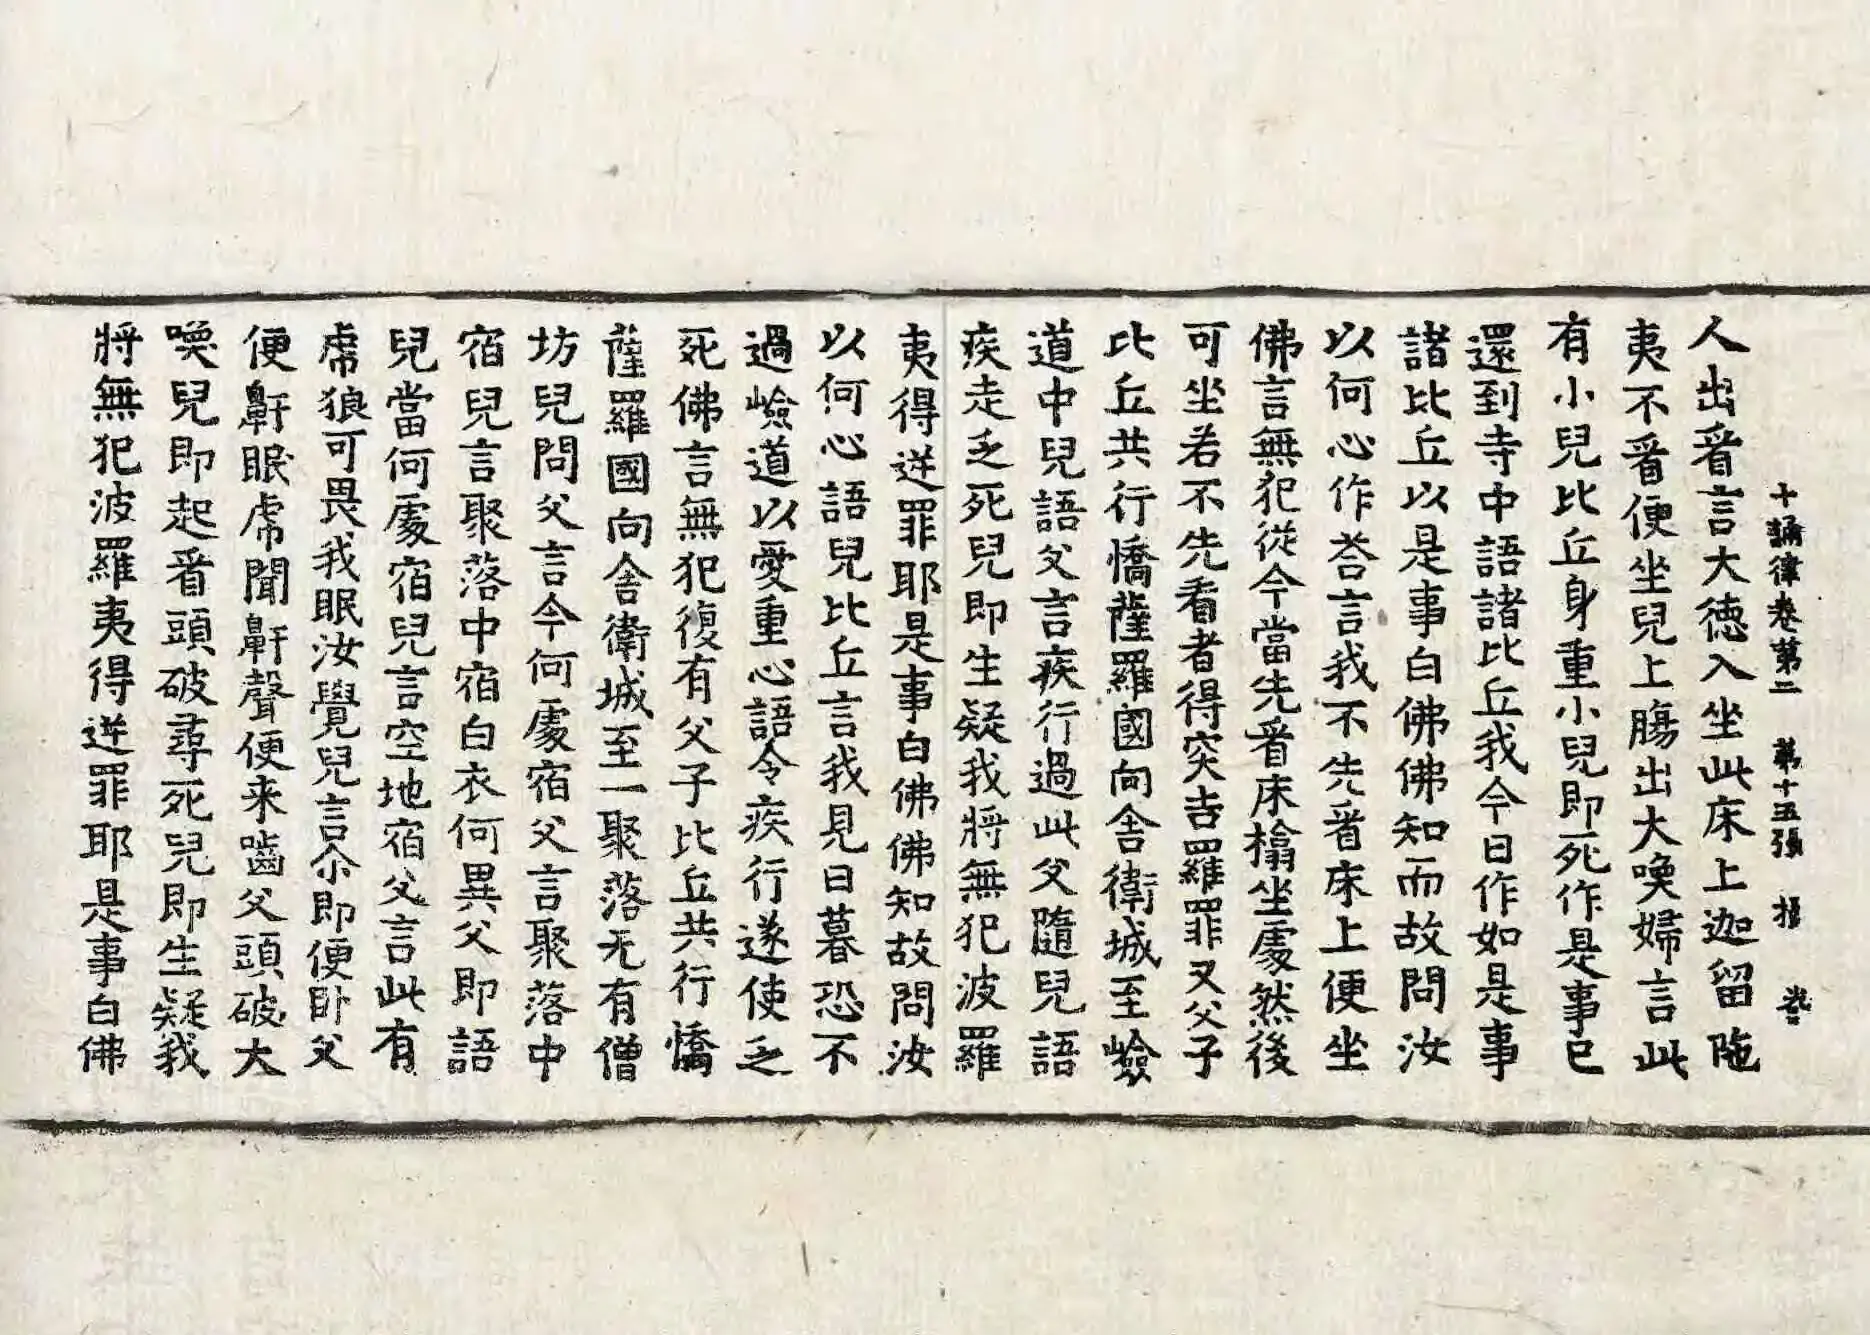 十誦律卷第二 第十五張
人出看言大德入坐此床上迦留陁
夷不看便坐兒上膓出大喚婦言此
有小兒比丘身重小兒即死作是事已
還到寺中語諸比丘我今日作如是事
諸比丘以是事白佛佛知而故問汝
以何心作荅言我不先看床上便坐
佛言無犯從今當先看床榻坐處然後
可坐若不先看者得突吉羅罪又父子
比丘共行憍薩羅國向舍衛城至嶮
道中兒語父言疾行過此父隨兒語
疾走乏死兒即生疑我將無犯波羅
夷得逆罪耶是事白佛佛知故問汝
以何心語兒比丘言我見日暮恐不
過嶮道以愛重心語令疾行遂使乏
死佛言無犯復有父子比丘共行憍
薩羅國向舍衛城至一聚落无有僧
坊兒問父言今何處宿父言聚落中
宿兒言聚落中宿白衣何異父即語
兒當何處宿兒言空地宿父言此有
虎狼可畏我眠汝覺兒言尒即便卧父
便鼾眠虎聞鼾聲便来嚙父頭破大
喚兒即起看頭破尋死兒即生疑我
將無犯波羅夷得逆罪耶是事白佛